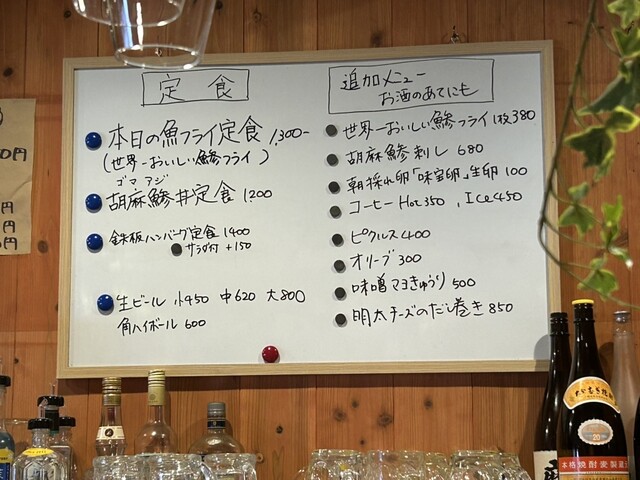 定食
本日の魚フライ定食 1,300-
(世界一おいしい鯵フライ)
ゴマ アジ
胡麻鯵丼定食 1200
鉄板ハンバーグ定食 1400
サラダ付 +150
生ビール 小450 中620 大800
角ハイボール 600
追加メニュー
お酒のあてにも
世界一おいしい鯵フライ 1枚380
胡麻鯵刺し 680
朝採れ卵「味宝卵」生卵 100
コーヒー Hot 350 , Ice 450
ピクルス 400
オリーブ 300
味噌マヨきゅうり 500
明太チーズのだし巻き 850
0円
円
円
0円
20
本格焼酎麦製